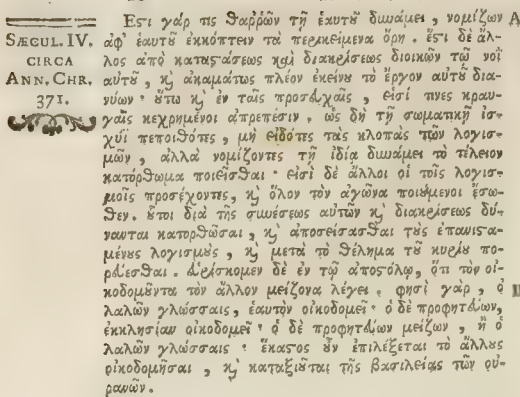 SÆCUL. IV.
CIRCA
ANN. CHR.
371.
Ἔστι γάρ τις θαρρῶν τῇ ἑαυτοῦ δυνάμει, νομίζων A
ἀφ' ἑαυτοῦ ἐκκόπτειν τὰ περικείμενα ὄρη. ἔστι δὲ ἄλ-
λος ἀπὸ καταστάσεως καὶ διακρίσεως διοικῶν τῷ νοῒ
αὐτοῦ, καὶ ἀκαμάτως πλέον ἐκείνου τὸ ἔργον αὐτοῦ δια-
νύων· οὕτω καὶ ἐν ταῖς προσευχαῖς, εἰσί τινες κραυ-
γαῖς κεχρημένοι ἀπρεπέσιν. ὡς δὴ τῇ σωματικῇ ἰσ-
χύϊ πεποιθότες, μὴ εἰδότες τὰς κλοπὰς τῶν λογισ-
μῶν, ἀλλὰ νομίζοντες τῇ ἰδίᾳ δυνάμει τὸ τέλειον
κατόρθωμα ποιεῖσθαι· εἰσὶ δὲ ἄλλοι οἱ τοῖς λογισ-
μοῖς προσέχοντες, καὶ ὅλον τὸν ἀγῶνα ποιούμενοι ἔσω-
θεν. οὗτοι διὰ τῆς συνέσεως αὐτῶν καὶ διακρίσεως δύ-
νανται κατορθῶσαι, καὶ ἀποσείσασθαι τοὺς ἐπανιστα-
μένους λογισμοὺς, καὶ μετὰ τὸ θέλημα τοῦ κυρίου πο-
ρεύεσθαι. εὑρίσκομεν δὲ ἐν τῷ ἀποστόλῳ, ὅτι τὸν οἰ-
κοδομοῦντα τὸν ἄλλον μείζονα λέγει. φησὶ γάρ, ὁ
λαλῶν γλώσσαις, ἑαυτὸν οἰκοδομεῖ· ὁ δὲ προφητεύων,
ἐκκλησίαν οἰκοδομεῖ· ὁ δὲ προφητεύων μείζων, ἢ ὁ
λαλῶν γλώσσαις· ἕκαστος οὖν ἐπιλέξεται τὸ ἄλλους
οἰκοδομῆσαι, καὶ καταξιοῦται τῆς βασιλείας τῶν οὐ-
ρανῶν.